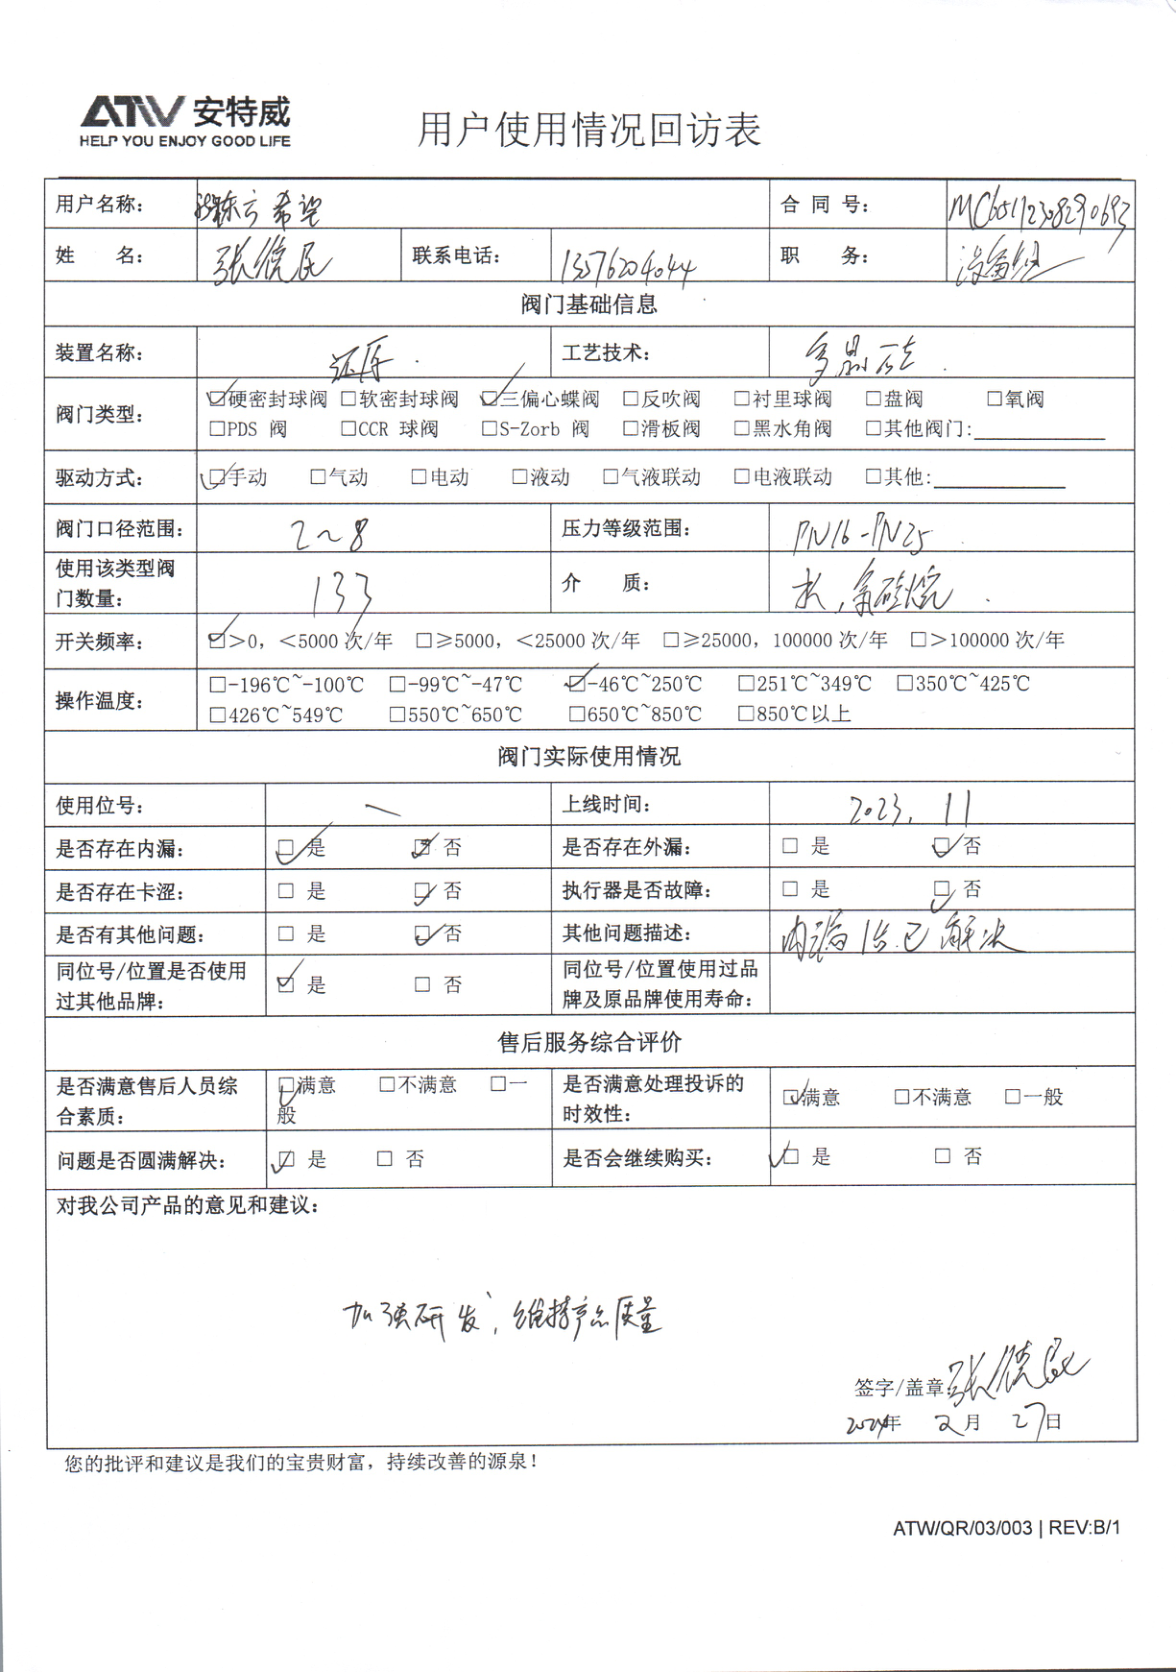 ATW 安特威
HELP YOU ENJOY GOOD LIFE
用户使用情况回访表
用户名称： 希望 合同号：
姓 名： 张德民 联系电话： 13576204044 职 务：
阀门基础信息
装置名称： 还原 工艺技术： 多晶硅
阀门类型： ☑硬密封球阀 □软密封球阀 ☑三偏心蝶阀 □反吹阀 □衬里球阀 □盘阀 □氧阀
□PDS 阀 □CCR 球阀 □S-Zorb 阀 □滑板阀 □黑水角阀 □其他阀门:
驱动方式： ☑手动 □气动 □电动 □液动 □气液联动 □电液联动 □其他:
阀门口径范围： 2~8 压力等级范围： PN16-PN25
使用该类型阀门数量： 133 介 质： 水，氯硅烷
开关频率： ☑>0，<5000 次/年 □≥5000，<25000 次/年 □≥25000，100000 次/年 □>100000 次/年
操作温度： □-196℃~-100℃ □-99℃~-47℃ ☑-46℃~250℃ □251℃~349℃ □350℃~425℃
□426℃~549℃ □550℃~650℃ □650℃~850℃ □850℃以上
阀门实际使用情况
使用位号： 一 上线时间： 2023. 11
是否存在内漏： ☑ 是 ☑ 否 是否存在外漏： □ 是 ☑ 否
是否存在卡涩： □ 是 ☑ 否 执行器是否故障： □ 是 ☑ 否
是否有其他问题： □ 是 ☑ 否 其他问题描述： 内漏1台.已解决
同位号/位置是否使用过其他品牌： ☑ 是 □ 否 同位号/位置使用过品牌及原品牌使用寿命：
售后服务综合评价
是否满意售后人员综合素质： ☑满意 □不满意 □一般 是否满意处理投诉的时效性： ☑满意 □不满意 □一般
问题是否圆满解决： ☑ 是 □ 否 是否会继续购买： ☑ 是 □ 否
对我公司产品的意见和建议：
加强研发，维持产品质量
签字/盖章 张德民
2024年 2月 27日
您的批评和建议是我们的宝贵财富，持续改善的源泉！
ATW/QR/03/003 | REV:B/1